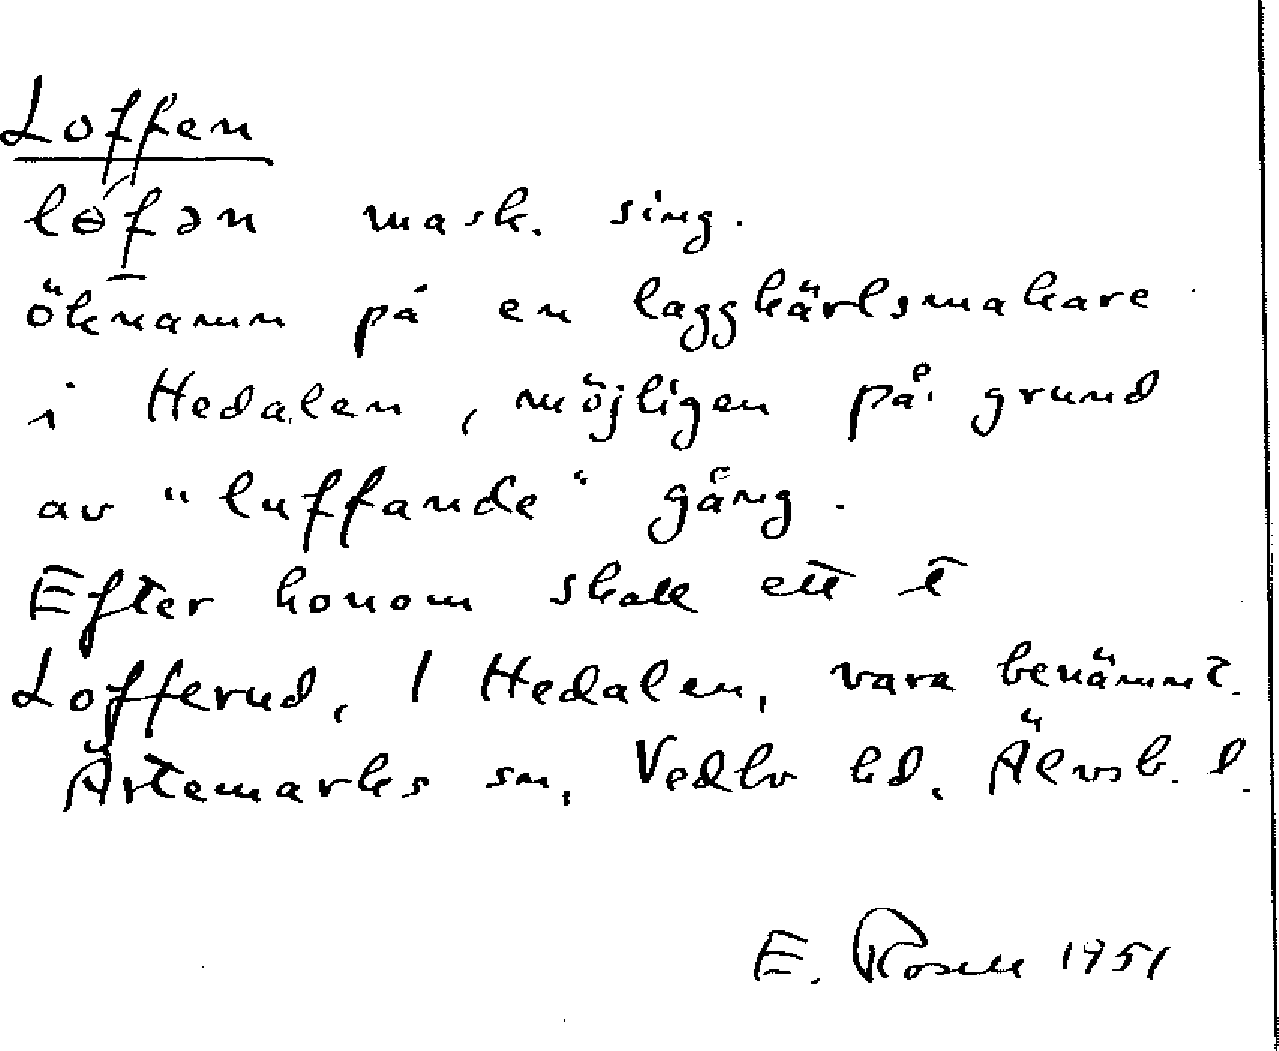 Loffen
lɵ́fən mask. sing.
öknamn på en laggkärlsmakare
i Hedalen, möjligen på grund
av "luffande" gång.
Efter honom skall ett t
Lofferud, i Hedalen, vara benämnt.
Ärtemarks sn, Vedbo hd, Älvsb. l.
E. Rosell 1951